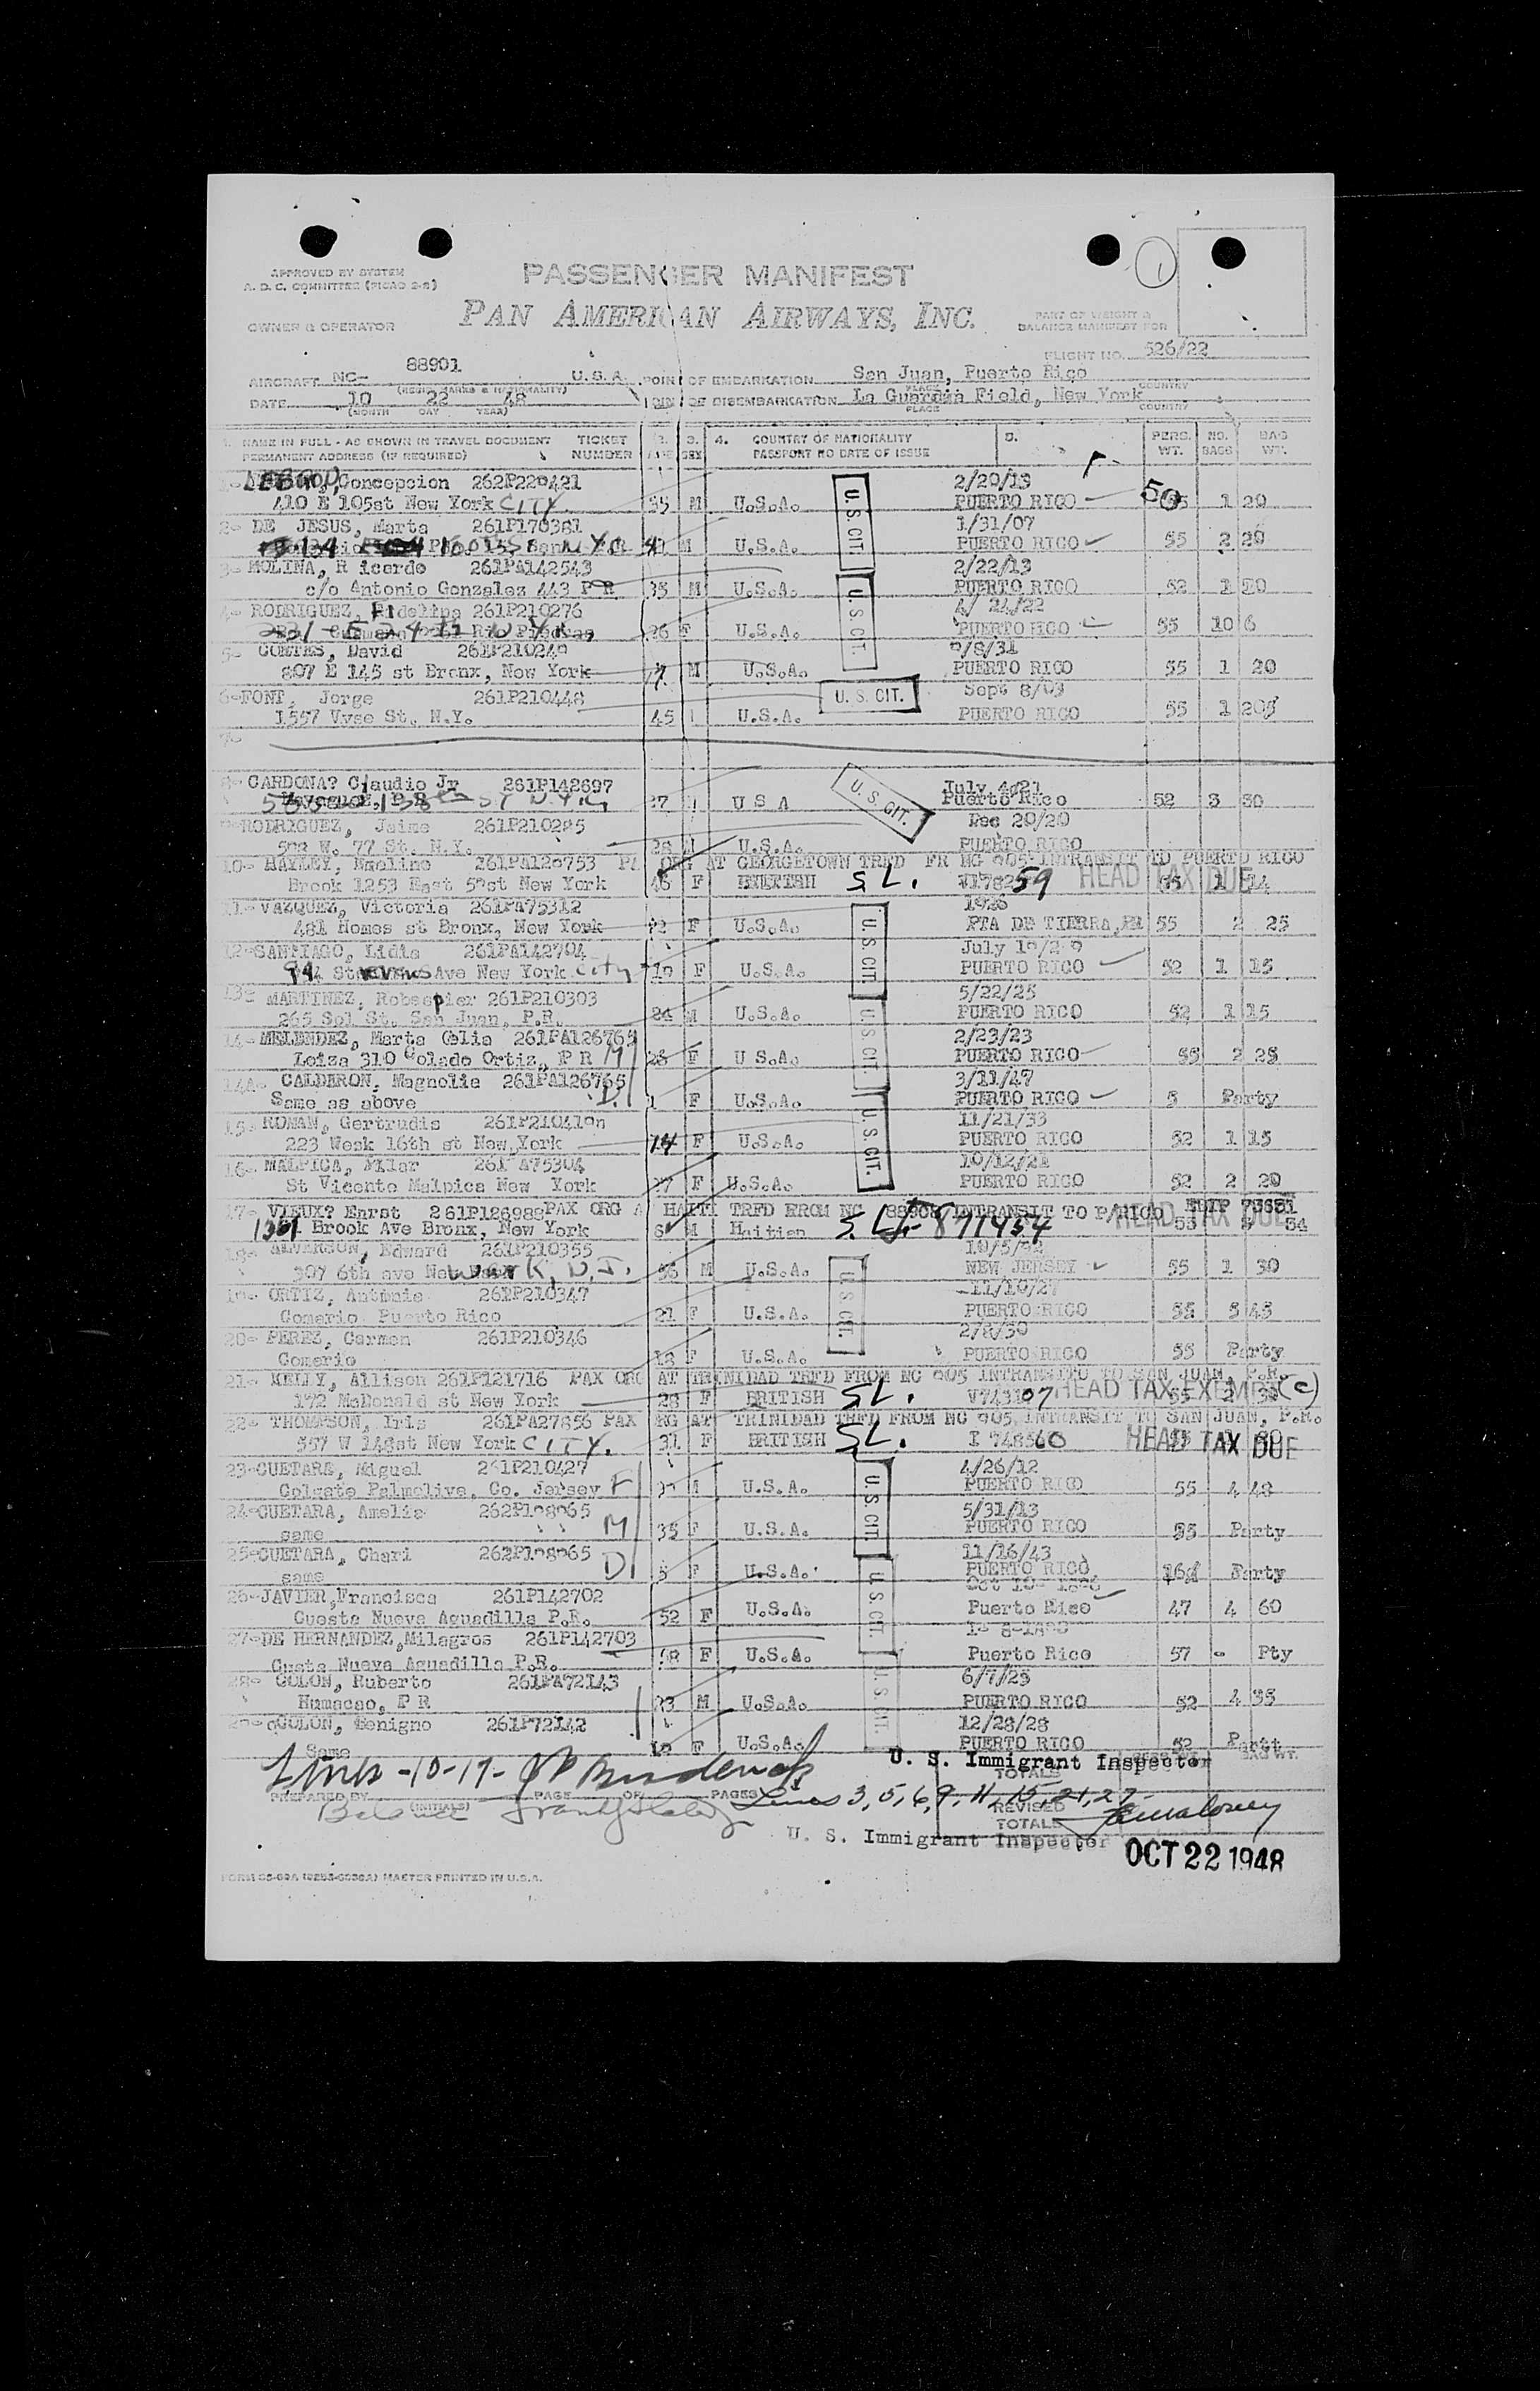 APPROVED BY SYSTEM
A. D. C. COMMITTEE (PICAO 2-8)
PASSENGER MANIFEST
PAN AMERICAN AIRWAYS, INC.
OWNER & OPERATOR
PART OF WEIGHT &
BALANCE MANIFEST FOR
FLIGHT NO. 526/22
AIRCRAFT NC- 88901 U.S.A. POINT OF EMBARKATION San Juan, Puerto Rico
(REG. MARKS & NATIONALITY) PLACE COUNTRY
DATE 10 22 48 POINT OF DISEMBARKATION La Guardia Field, New York
(MONTH DAY YEAR) PLACE COUNTRY
1. NAME IN FULL - AS SHOWN IN TRAVEL DOCUMENT TICKET 2. 3. 4. COUNTRY OF NATIONALITY 5. PERS. NO. BAG
PERMANENT ADDRESS (IF REQUIRED) NUMBER AGE SEX PASSPORT NO DATE OF ISSUE WT. BAGS. WT.
Concepcion 262P220421 2/20/13
410 E 105st New York CITY 35 M U.S.A. PUERTO RICO 50 1 20
2- DE JESUS, Marta 261P170381 1/31/07
M U.S.A. PUERTO RICO 55 2 20
3- MOLINA, R icardo 261PA142543 2/22/13
c/o Antonio Gonzalez 443 P R 35 M U.S.A. PUERTO RICO 52 1
4- RODRIGUEZ, 261P210276 4/ 24/22
26 F U.S.A. PUERTO RICO 55 10 6
5- CORTES, David 261P210240 /8/31
807 E 145 st Bronx, New York M U.S.A. PUERTO RICO 55 1 20
6- FONT, Jorge 261P210448 Sept 8/03
1557 Vyse St. N.Y. 45 U.S.A. U. S. CIT. PUERTO RICO 55 1 205
7-
8- CARDONA? Claudio Jr 261P142697 July 4/21
27 U S A U. S. CIT. Puerto Rico 52 3 30
9- RODRIGUEZ, Jaime 261P210285 Dec 20/20
W. 77 St. N.Y. 28 M U.S.A. PUERTO RICO
10- HAYLEY, Emeline 261PA120753 PAX ORG AT GEORGETOWN TRFD FR NC 905 INTRANSIT TO PUERTO RICO
Brook 1253 East 5 st New York 46 F BRITISH S.L. 59 HEAD TAX DUE 55 1 14
11- VAZQUEZ, Victoria 261PA75312
481 Homes st Bronx, New York F U.S.A. PTA DE TIERRA, PR 55 2 25
12- SANTIAGO, Lidia 261PA142704 July
Ave New York City 19 F U.S.A. PUERTO RICO 52 1 15
13- MARTINEZ, Robespier 261P210303 5/22/25
265 Sol St. San Juan, P.R. 24 M U.S.A. PUERTO RICO 52 1 15
14- MELENDEZ, Marta Celia 261PA126765 2/23/23
Loiza 310 Colado Ortiz, P R M 25 F U S.A. PUERTO RICO 55 2 25
14A- CALDERON, Magnolia 261PA126765 3/11/47
Same as above D. 1 F U.S.A. PUERTO RICO 3 Party
15- ROMAN, Gertrudis 261P210410n 11/21/33
223 West 16th st New York 14 F U.S.A. PUERTO RICO 52 1 15
16- MALPICA, Pilar 261PA75304 10/12/21
St Vicente Malpica New York 27 F U.S.A. PUERTO RICO 52 2 20
17- VIEUX? Enrst 261P126988 PAX ORG A HAITI TRFD FROM NC 88908 INTRANSIT TO P/RICO
1301 Brook Ave Bronx, New York M Haitian S.L. 871454 HEAD TAX DUE 55 54
18- ALVERSON, Edward 261P210355
307 6th ave Newark, N.J. 56 M U.S.A. NEW JERSEY 55 1 30
19- ORTIZ, Antonia 261P210347 11/10/27
Comerio Puerto Rico 21 F U.S.A. PUERTO RICO 55 5 45
20- PEREZ, Carmen 261P210346 2/8/30
Comerio 18 F U.S.A. PUERTO RICO 55 Party
21- KELLY, Allison 261P121716 PAX ORG AT TRINIDAD TRFD FROM NC 905 INTRANSITO TO SAN JUAN, P.R.
172 McDonald st New York 28 F BRITISH S.L. V743107 HEAD TAX EXEMPT (c)
22- THOMPSON, Iris 261PA27856 PAX ORG AT TRINIDAD TRFD FROM NC 905, INTRANSIT TO SAN JUAN, P.R.
557 W 148st New York CITY. 31 F BRITISH S.L. I 748560 HEAD TAX DUE
23- CUETARA, Miguel 261P210427 4/26/12
Colgate Palmolive, Co. Jersey F U.S.A. PUERTO RICO 55 4 48
24- CUETARA, Amelia 262P198965 5/31/13
same M 35 F U.S.A. PUERTO RICO 55 Party
25- CUETARA, Chari 262P198965 11/16/43
same D 5 F U.S.A. PUERTO RICO Party
26- JAVIER, Francisca 261P142702
Cuesta Nueva Aguadilla P.R. 52 F U.S.A. Puerto Rico 47 4 60
27- DE HERNANDEZ, Milagros 261P142703
Custa Nueva Aguadilla P.R. F U.S.A. Puerto Rico 57 - Pty
28- COLON, Ruberto 261PA72143 6/7/25
Humacao, P R 23 M U.S.A. PUERTO RICO 52 4 35
COLON, Benigno 261P72142 12/28/28
Same 19 F U.S.A. PUERTO RICO 52
U. S. CIT.
U. S. CIT.
U. S. CIT.
U. S. CIT.
U. S. CIT.
U. S. CIT.
U. S. CIT.
U. S. CIT.
U. S. CIT.
Lines -10-17-
U. S. Immigrant Inspector
TOTALS
PREPARED BY (INITIALS) PAGE OF PAGES
Lines 3, 5, 6, 9, 11, 15, 21, 27
REVISED
TOTALS
U. S. Immigrant Inspector
OCT 22 1948
FORM MASTER PRINTED IN U.S.A.